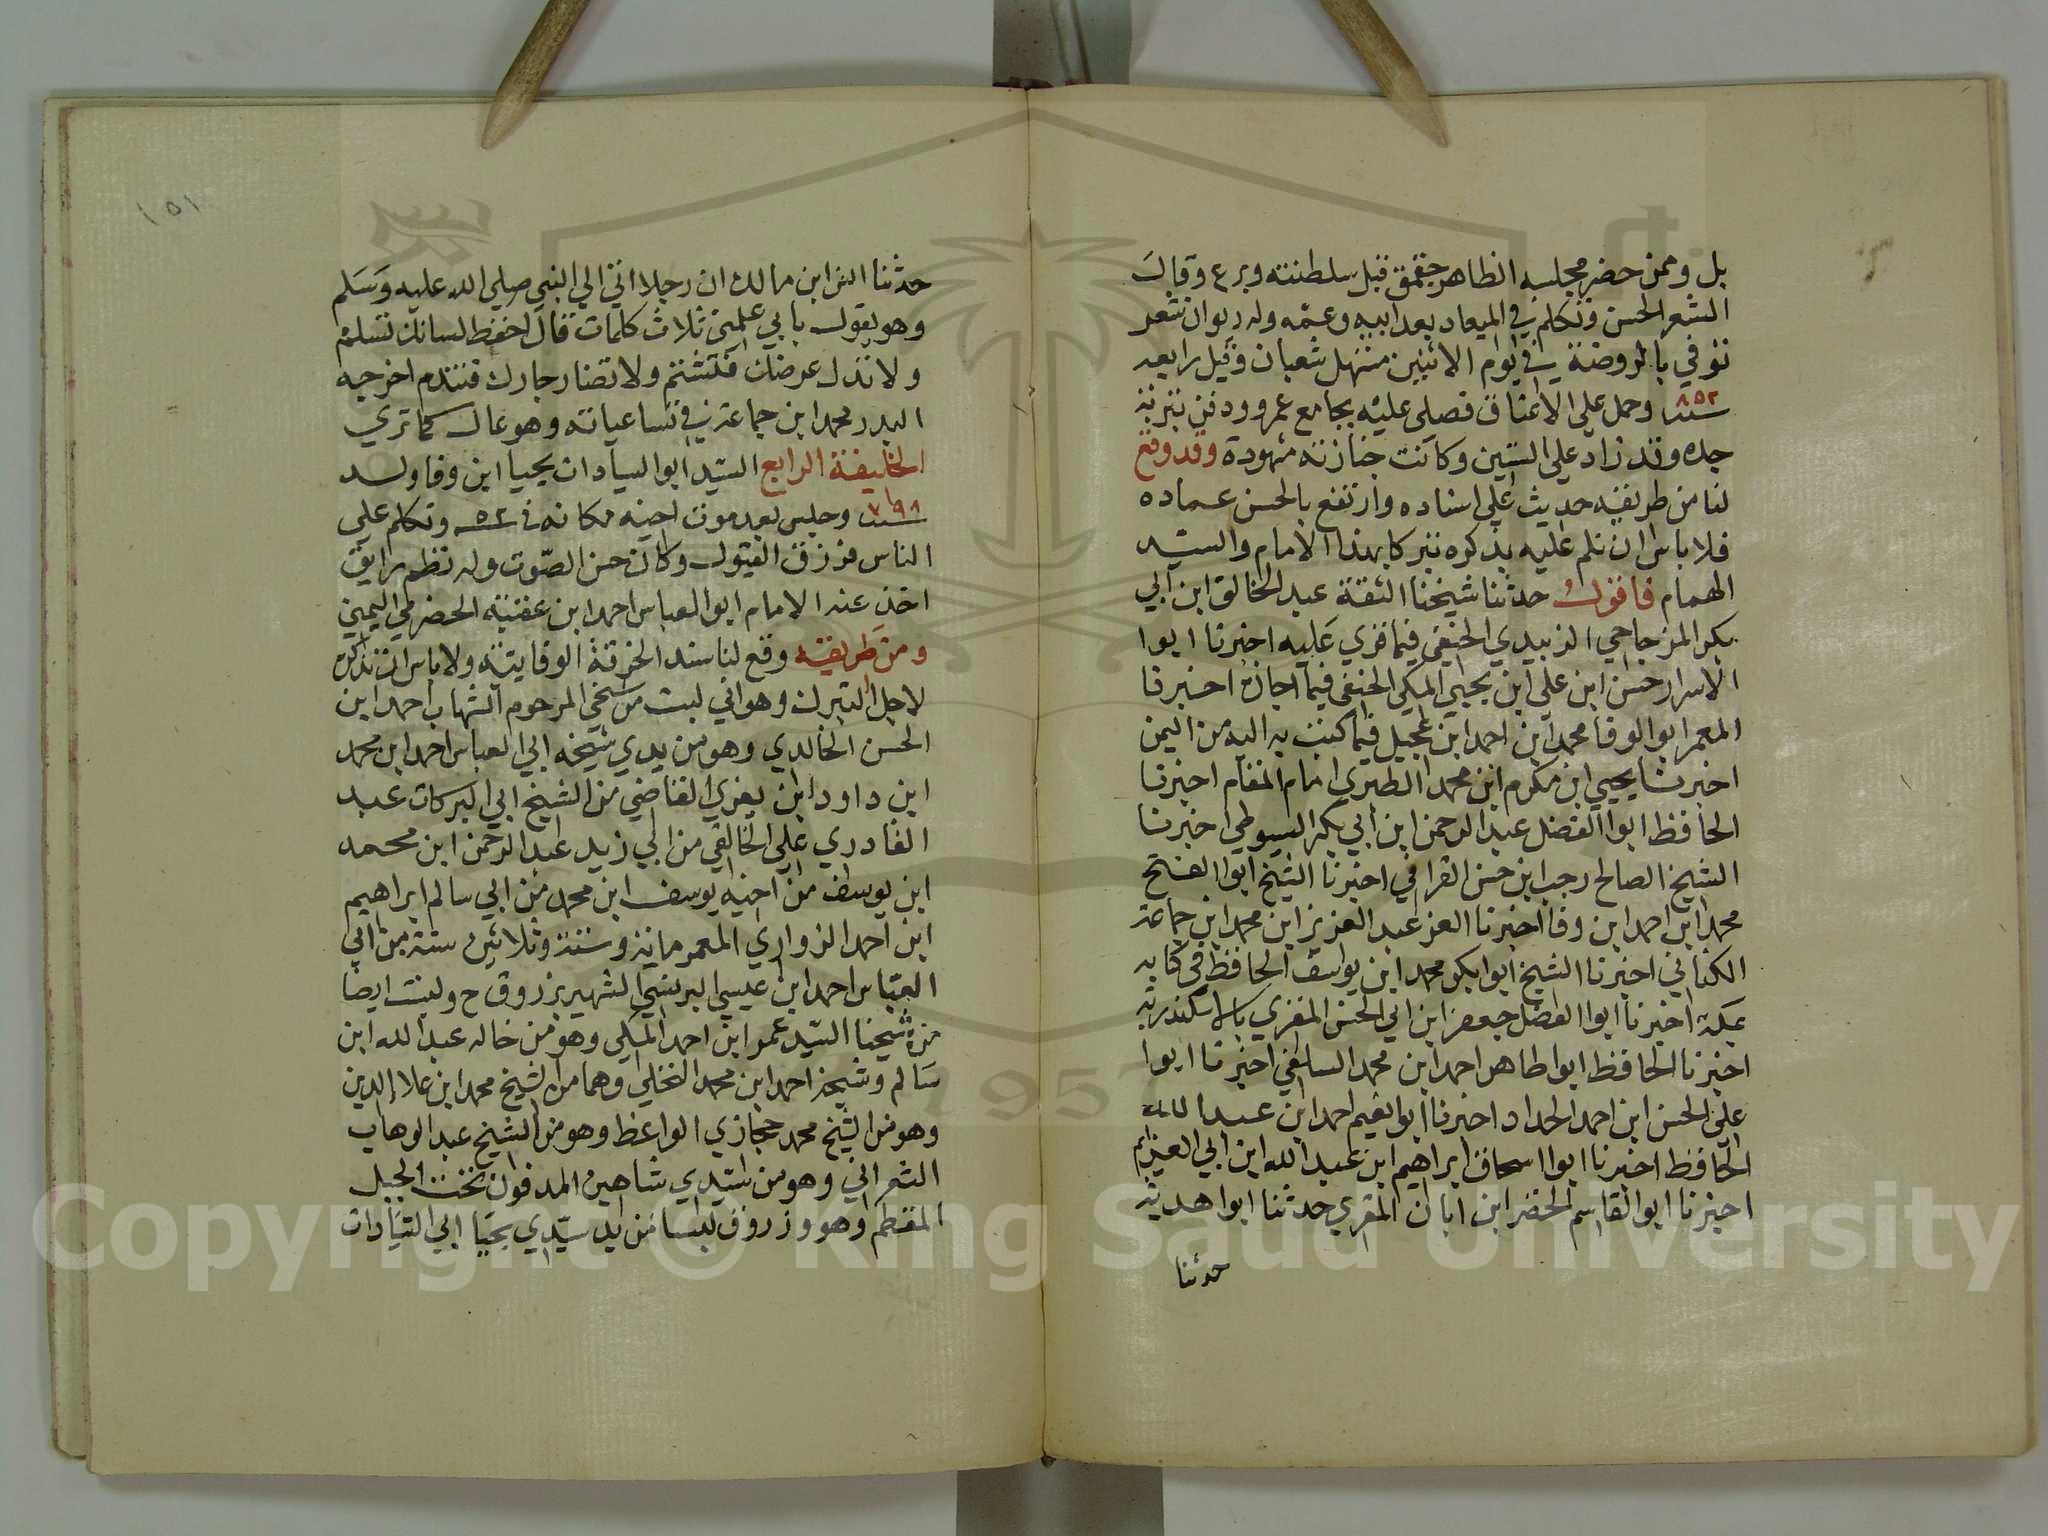 بل وممن حضر مجلسه الظاهر جقمق قبل سلطنته وبرع وقال
الشعر الحسن وتكلم في الميعاد بعد ابيه وعمه وله ديوان شعر
توفي بالروضة في يوم الاثنين مستهل شعبان وقيل رابعه
سنة ٨٥٢ وحمل على الاعناق فصلي عليه بجامع عمرو ودفن بتربة
جده وقد زاد على الستين وكانت جنازته مشهودة وقد وقع
لنا من طريقه حديث اعلى اسناده وارتفع بالحسن عماده
فلا باس ان نلم عليه بذكره تبركا بهذا الامام والسيد
الهمام فاقول حدثنا شيخنا الثقة عبد الخالق ابن ابي
بكر المزجاجي الزبيدي الحنفي فيما قري عليه اخبرنا ابوا
الاسرار حسن ابن علي ابن يحيي المكي الحنفي فيما اجازه اخبرنا
المعمر ابوالوفا محمد ابن احمد ابن عجيل فيما كتب به اليه من اليمن
اخبرنا يحيي ابن مكرم ابن محمد الطبري امام المقام اخبرنا
الحافظ ابوا الفضل عبد الرحمن ابن ابي بكر السيوطي اخبرنا
الشيخ الصالح رجب ابن حسن القرافي اخبرنا الشيخ ابوا الفتح
محمد ابن احمد ابن وفا اخبرنا العز عبد العزيز ابن محمد ابن جماعة
الكناني اخبرنا الشيخ ابوا بكر محمد ابن يوسف الحافظ في كتابه
بمكة اخبرنا ابوا الفضل جعفر ابن ابي الحسن المقري بالاسكندرية
اخبرنا الحافظ ابوا طاهر احمد ابن محمد السلفي اخبرنا ابوا
علي الحسن ابن احمد الحداد اخبرنا ابوا نعيم احمد ابن عبد الله
الحافظ اخبرنا ابوا اسحاق ابراهيم ابن عبد الله ابن ابي العزائم
اخبرنا ابوا القاسم الخضر ابن ابان المقري حدثنا ابوا هدبة
حدثنا
١٥١
حدثنا انس ابن مالك ان رجلا اتي الي النبي صلي الله عليه وسلم
وهو يقول بابي علمني ثلاث كلمات قال احفظ لسانك تسلم
ولا تبذل عرضك فتشتم ولا تضار جارك فتندم اخرجه
البدر محمد ابن جماعة في تساعياته وهو عال كما تري
الخليفة الرابع السيد ابوا السيادات يحيا ابن وفا ولد
سنة ٧٩٨ وجلس بعد موت اخيه مكانه في ٥٢ وتكلم علي
الناس فرزق القبول وكان حسن الصوت وله نظم رايق
اخذ عنه الامام ابوا العباس احمد ابن عقبة الحضرمي اليمني
ومن طريقه وقع لنا سند الخرقة الوفايية ولا باس ان نذكره
لاجل التبرك وهو اني لبست من شيخي المرحوم الشهاب احمد ابن
الحسن الخالدي وهو من يدي شيخه ابي العباس احمد ابن محمد
ابن داود ابن يعزي القاضي من الشيخ ابي البركات عبد
القادري علي الخالقي من ابي زيد عبد الرحمن ابن محمد
ابن يوسف من اخيه يوسف ابن محمد من ابي سالم ابراهيم
ابن احمد الزواري المعمر ماية وستة وثلاثين سنة من ابي
العباس احمد ابن عيسي البرنسي الشهير بزروق ح ولبست ايضا
من شيخنا السيد عمر ابن احمد المكي وهو من خاله عبد الله ابن
سالم وشيخه احمد ابن محمد النخلي وهما من الشيخ محمد ابن علاء الدين
وهو من الشيخ محمد حجازي الواعظ وهو من الشيخ عبد الوهاب
الشعراني وهو من سيدي شاهين المدفون تحت الجبل
المقطم وهو وزروق لبسا من يد سيدي يحيا ابي السيادات
1957
Copyright © King Saud University